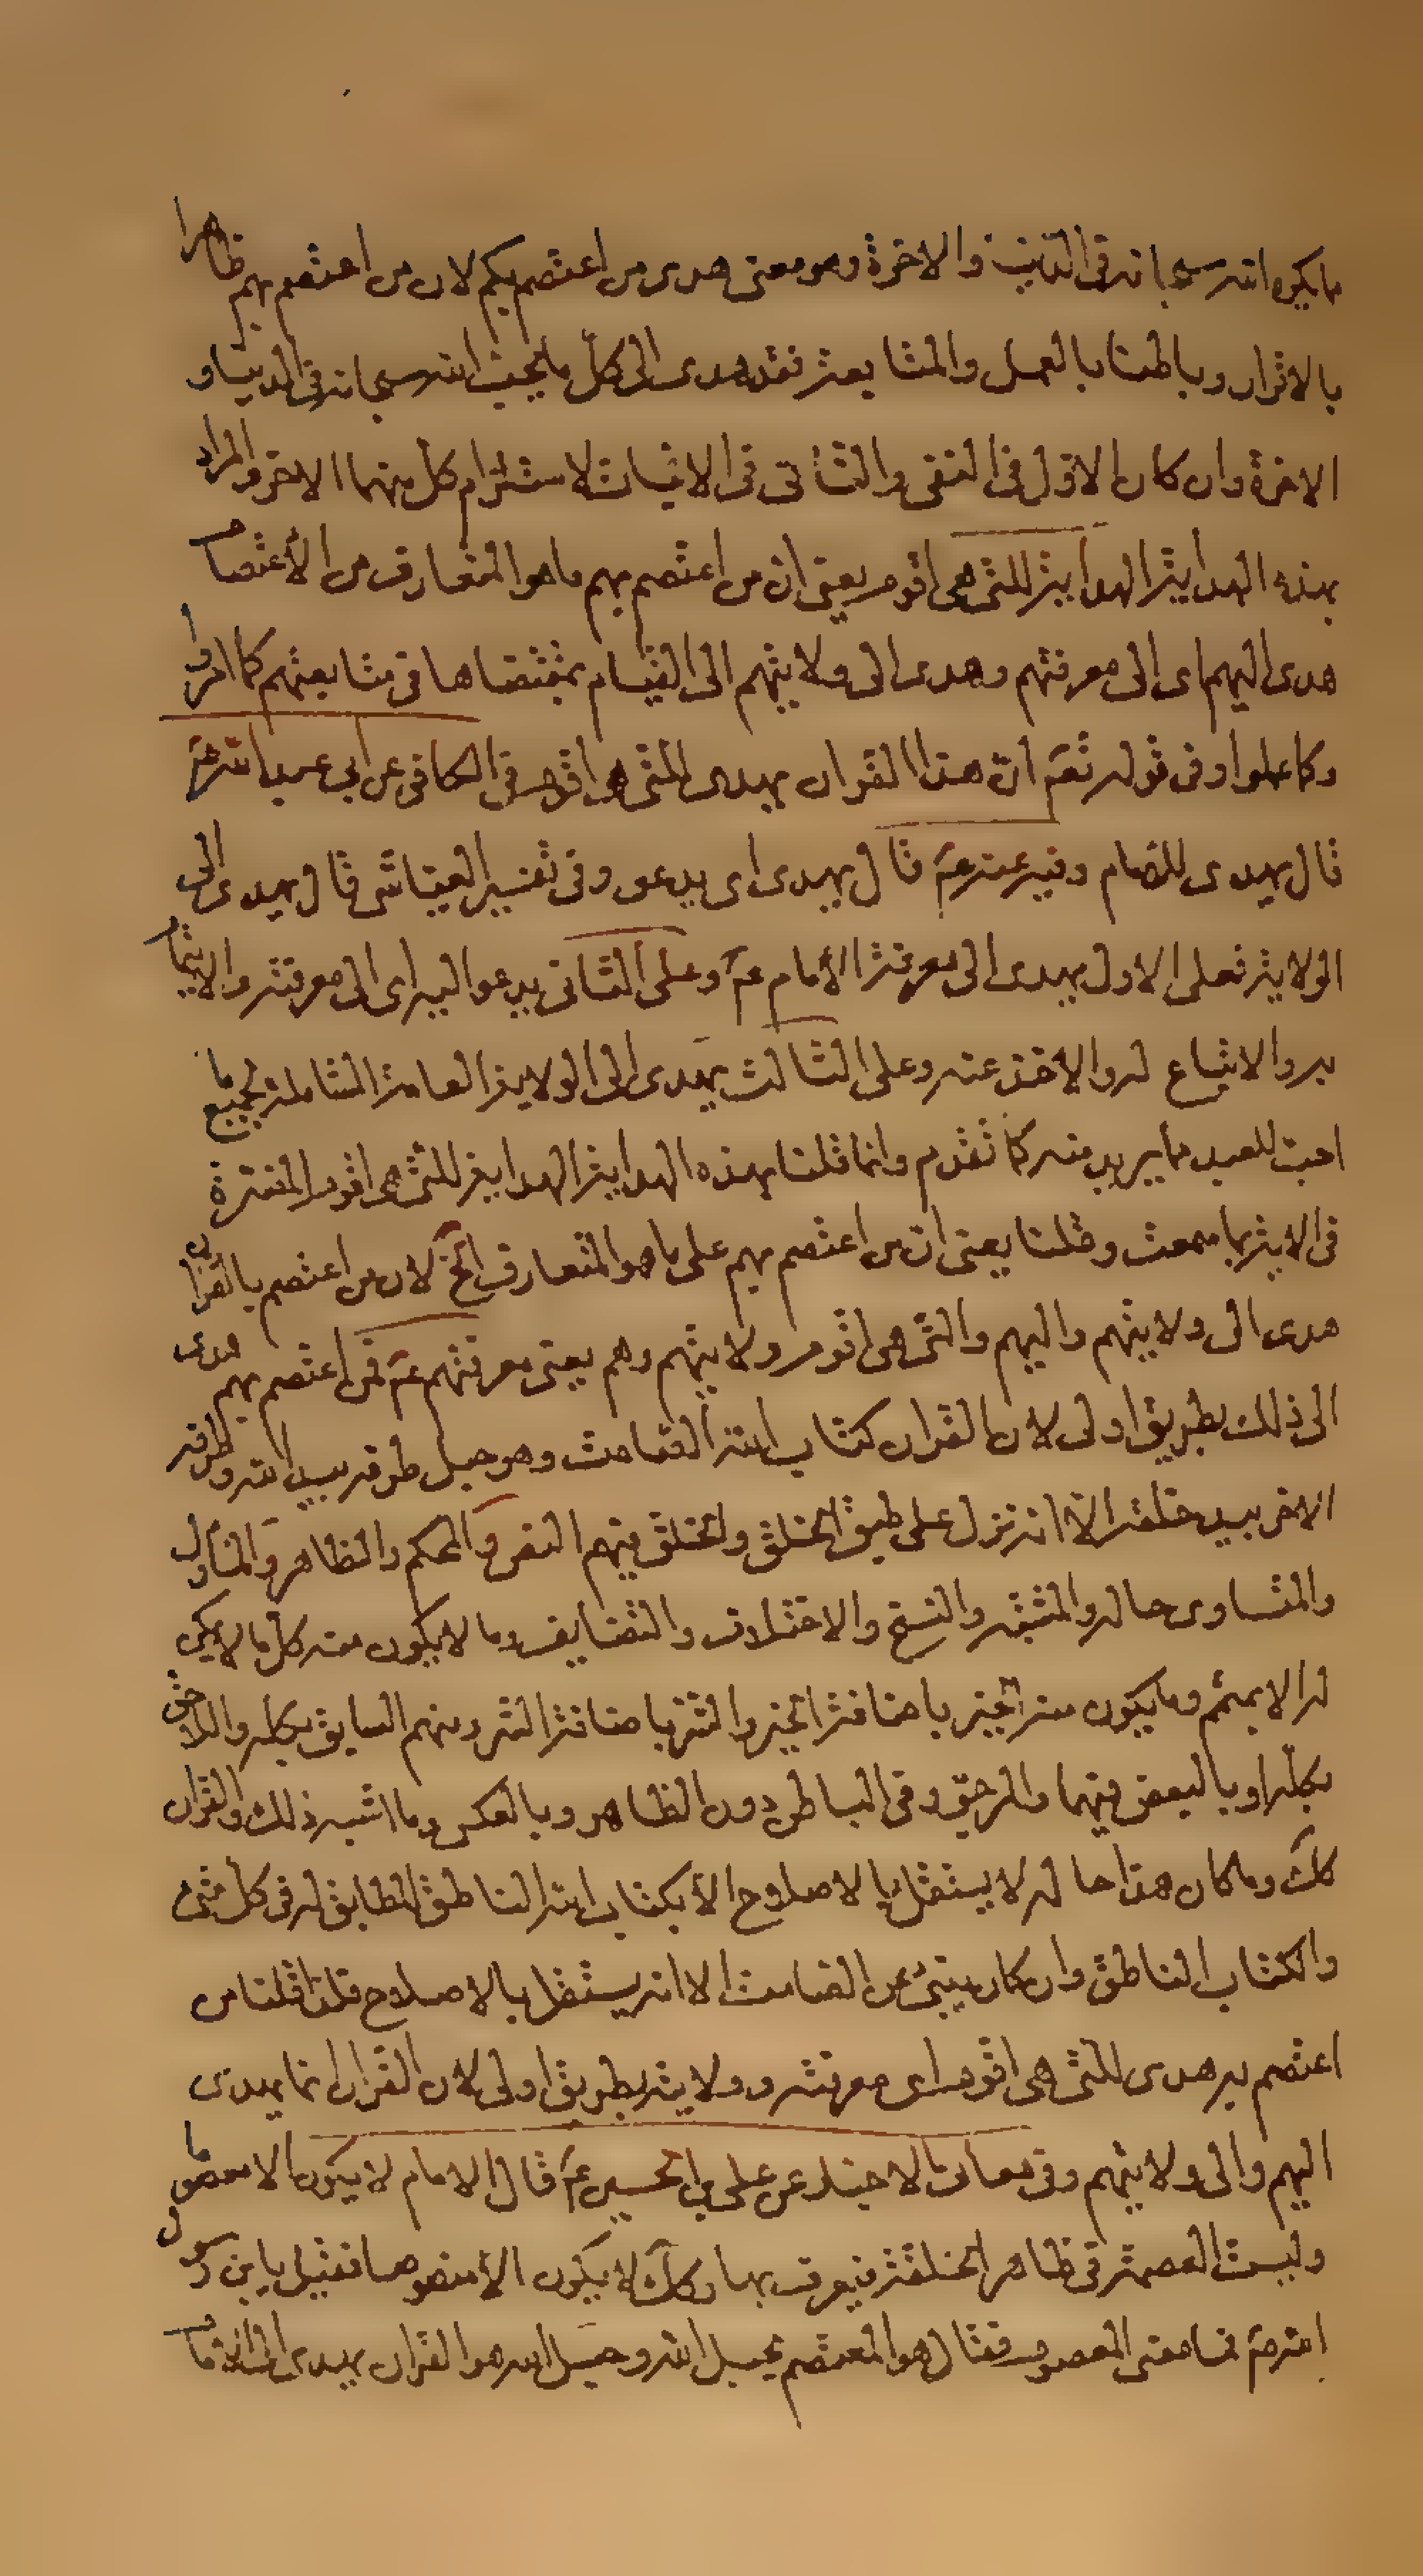 ما يكره الله سبحانه في الدنيا والاخرة وهو معنى هدى من اعتصم بكم لان من اعتصم بهم ظاهرا
بالاقرار وباطنا بالعمل والمتابعة فقد هدى الى كل ما يحب الله سبحانه في الدنيا و
الاخرة وان كان الاول في النفى والثانى فى الاثبات لاستلزام كل منهما الاخر والمراد
بهذه الهداية الهداية للتى هى اقوم يعنى ان من اعتصم بهم ما هو المتعارف من الأعتصام
هدى اليهم اى الى معرفتهم وهدى الى ولايتهم الى القيام بمقتضاها فى متابعتهم كما امروا
وكما علموا وفى قوله تعم ان هذا القران يهدى للتى هى اقوم فى الكافى عن ابى عبد الله عم
قال يهدى للامام وفيه عنه عم قال يهدى اى يدعو وفى تفسير العياشى قال يهدى الى
الولاية فعلى الاول يهدى الى معرفة الأمام عم وعلى الثانى يدعوا اليه اى الى معرفته والايتمام
به والاتباع له والأخذ عنه وعلى الثالث يهدى الى الولاية العامة الشاملة لجميع ما
احب للعبد مما يريد منه كما تقدم وانما قلنا بهذه الهداية الهداية للتى هى اقوم المفسرة
فى الاية بما سمعت وقلنا يعنى ان من اعتصم بهم على ما هو المتعارف الخ لان من اعتصم بالقران
هدى الى ولايتهم واليهم والتى هى اقوم ولايتهم وهم يعنى معرفتهم عم فمن اعتصم بهم هدى
الى ذلك بطريق اولى لان القران كتاب الله الصامت وهو حبل طرفه بيد الله وطرفه
الاخر بيد خلقه الا انه نزل على طبق الخلق والخلق فيهم النص والمحكم والظاهر والمأول
والمتساوى حاله والمشبه والنسخ والاختلاف والتضايف وما لا يكون منه كل ما لا يمكن
له الا بمتمم وما يكون منه الخير باضافة الخير والشر باضافة الشر ومنهم السابق بكله واللاحق
بكله او بالبعض فيهما والمرجى وفى الباطن دون الظاهر وبالعكس وما اشبه ذلك والقران
كك وما كان هذا حاله لا يستقل بالاصلاح الا بكتاب الله الناطق المطابق له فى كل شئ
والكتاب الناطق وان كان ينبئ عن الصامت الا انه يستقل بالاصلاح فلذا قلنا من
اعتصم به هدى للتى هى اقوم اى معرفته وولايته بطريق اولى لان القران انما يهدى
اليهم والى ولايتهم وفى معانى الاخبار عن على بن الحسين عم قال الامام لا يكون الا معصوما
وليست العصمة فى ظاهر الخلقة فيعرف بها وكك لا يكون الا منصوصا فقيل يابن رسول
الله ص فما معنى المعصوم فقال هو المعتصم بحبل الله وحبل الله هو القران يهدى الى الامام